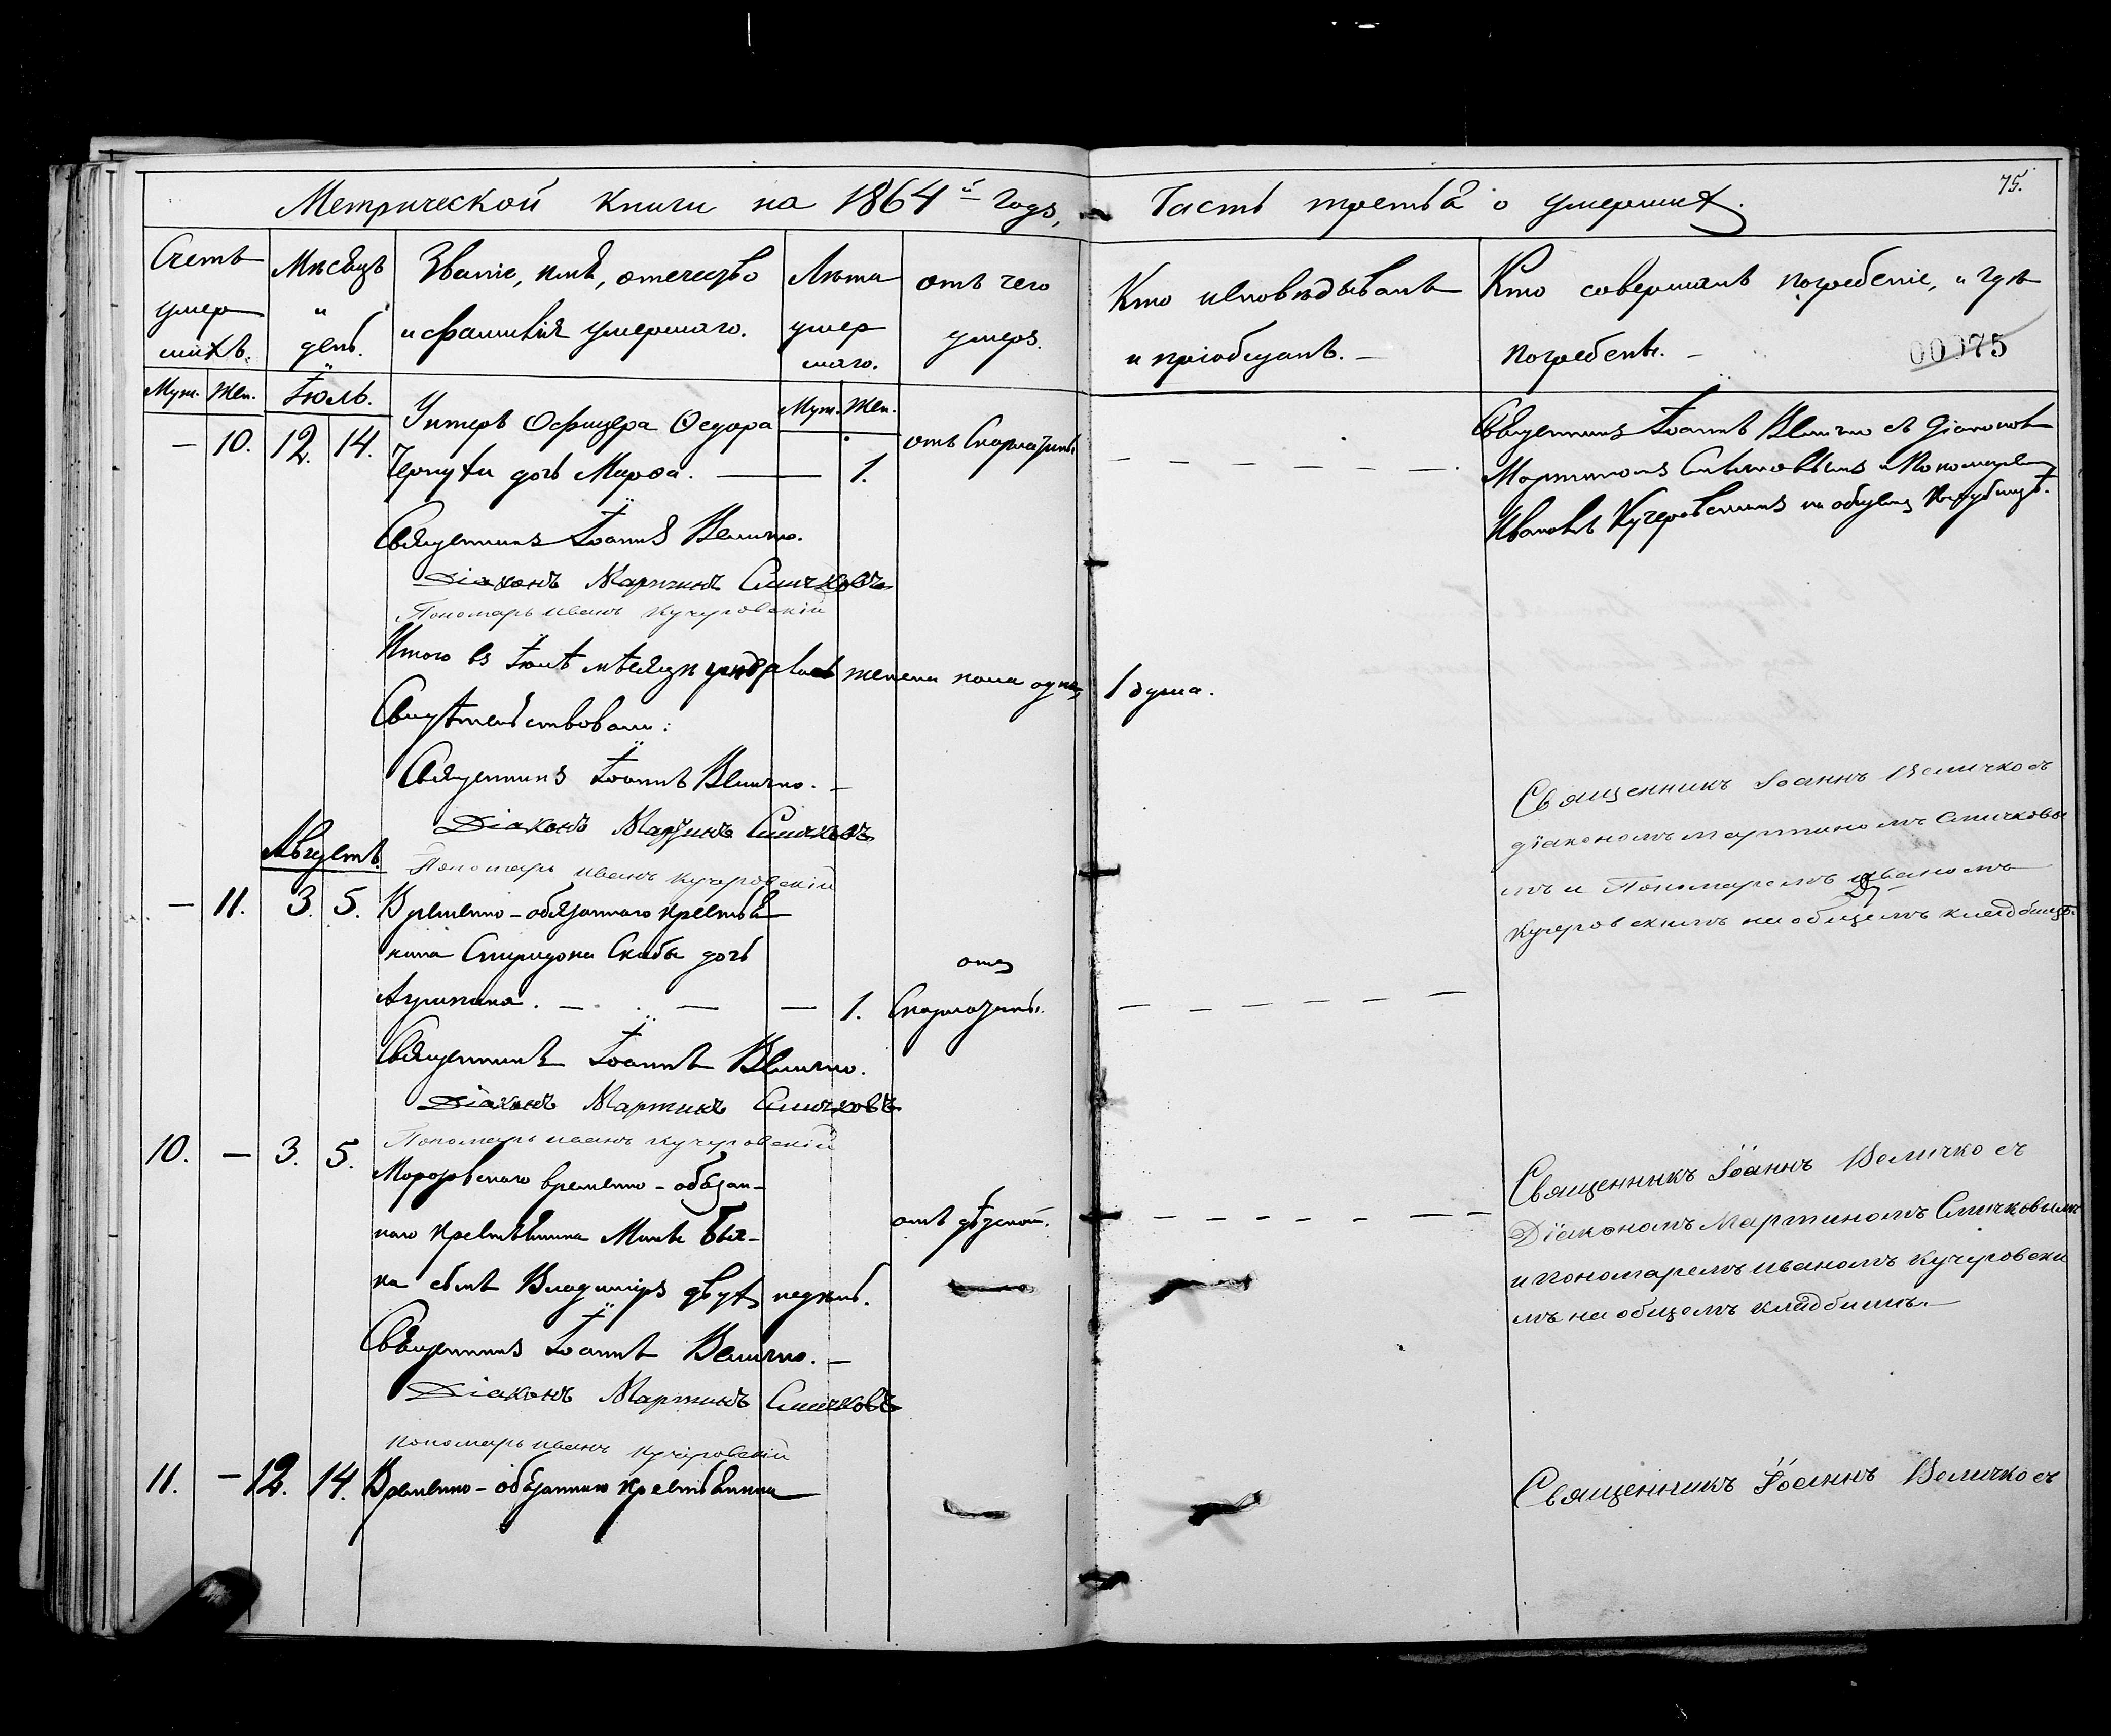 75.
Метрической книги на 1864й годъ, Часть третья о умершихъ.
Счетъ умершихъ.
Мѣсяцъ и день.
Званіе, имя, отечество и фамилія умершаго.
Лѣта умершаго.
отъ чего умеръ.
Кто исповѣдывалъ и пріобщалъ. —
Кто совершалъ погребеніе, и гдѣ погребены. —
00075
Муж. Жен. Іюль. Муж. Жен.
— 10. 12. 14. Унтеръ Офицера Ѳедора
дочь Марѳа. — 1. отъ
Священникъ Іоаннъ Величко съ Діакономъ
Мартиномъ Смычковымъ и Пономаремъ
Иваномъ Кучеровскимъ на общемъ кладбищѣ.
Священникъ Іоаннъ Величко.
Діаконъ Мартинъ Смычковъ
Пономарь Иванъ Кучеровскій
Итого въ Іюлѣ мѣсяцѣ умерло женска пола одна, 1 душа.
Свидѣтельствовали:
Священникъ Іоаннъ Величко. —
Діаконъ Мартинъ Смычковъ
Пономарь Иванъ Кучеровскій
Августъ.
— 11. 3. 5. Временно-обязаннаго крестья-
нина Спиридона Скабы дочь
— 1. отъ
Священникъ Іоаннъ Величко съ
діакономъ Мартиномъ Смычковы
мъ и Пономаремъ Иваномъ
Кучеровскимъ на общемъ кладбищѣ.
Священникъ Іоаннъ Величко.
Діаконъ Мартинъ Смычковъ
Пономарь Иванъ Кучеровскій
10. — 3. 5. временно-обязан-
наго крестьянина
сынъ Владиміръ двухъ недѣль.
отъ
Священникъ Іоаннъ Величко съ
Діакономъ Мартиномъ Смычковымъ
и пономаремъ Иваномъ Кучеровски
мъ на общемъ кладбищѣ.—
Священникъ Іоаннъ Величко. —
Діаконъ Мартинъ Смычковъ
Пономарь Иванъ Кучеровскій
11. — 12. 14. Временно-обязаннаго крестьянина
Священникъ Іоаннъ Величко съ